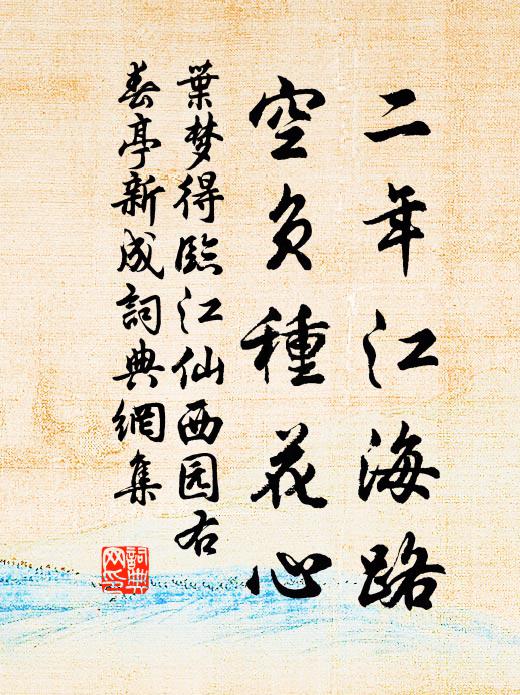 二年江海路
空负種花心
葉梦得臨江仙西园右
春亭新成詞典網集
詞典网印